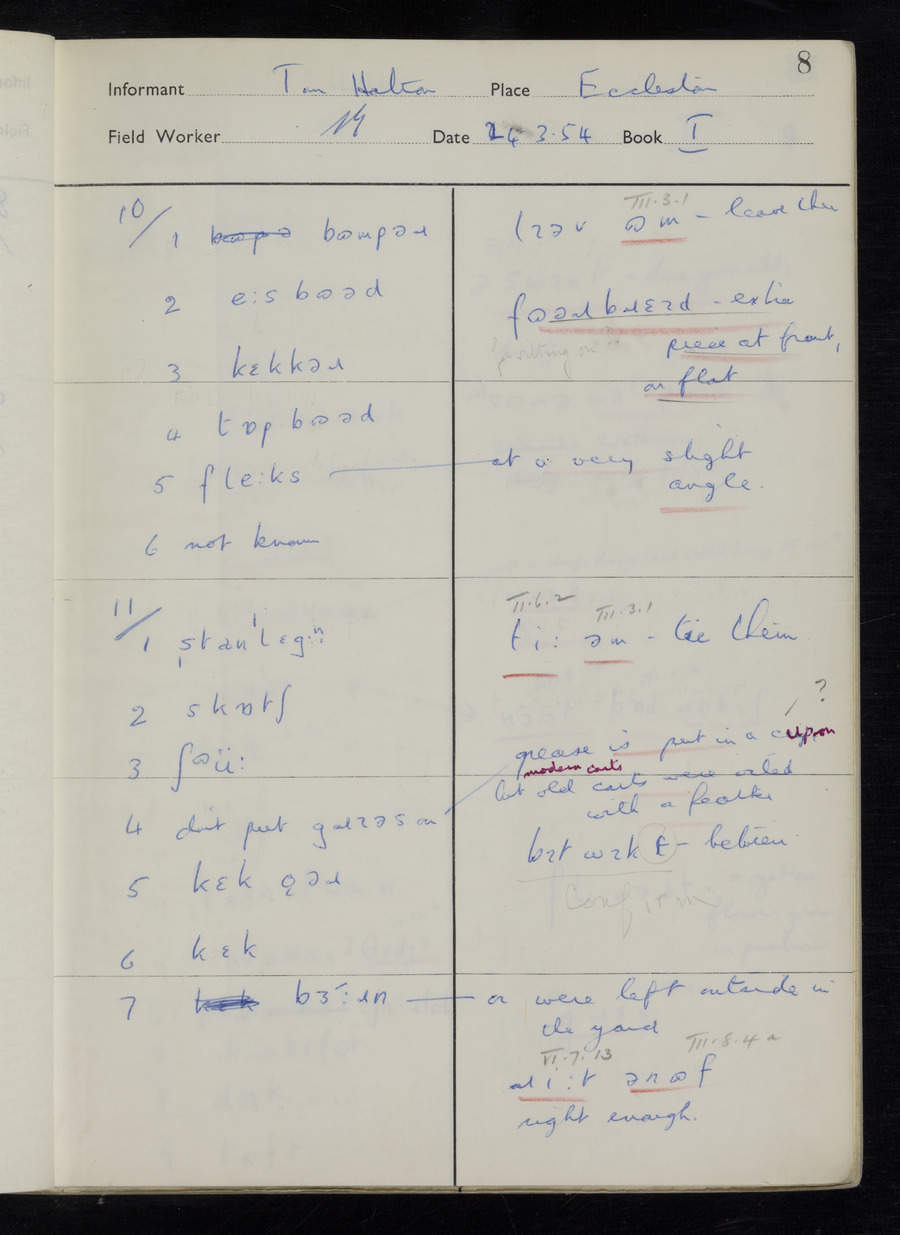 8
Informant Tom Halton Place Eccleston
Field Worker Date 24.3.54 Book I
10/
1 bɷmpəɹ
III.3.1
lɪəv ɷm - leave them
2 e:sbɷəd
fɷəɹbɹɛɪd - extra
piece at front,
or flat
3 kɛkkəɹ
4 tɒpbɷəd
5 fle:ks at a very slight
angle.
6 not known
11/
1 stanlɛg:n
II.6.2 III.3.1
ti: əm - tie them
2 skɒtʃ
?
grease is put in a upon
modern carts
3 ʃɷü:
but old carts were oiled
with a feather
4 don't put gɹɪəs on
bɪt wɪk t - between
Confirm
5 kɛk ꬶəɹ
6 kɛk
7 bɜ:ɹn or were left outside in
the yard
VI.7.13 III.8.4a
ɹi:t ənɷf
right enough.